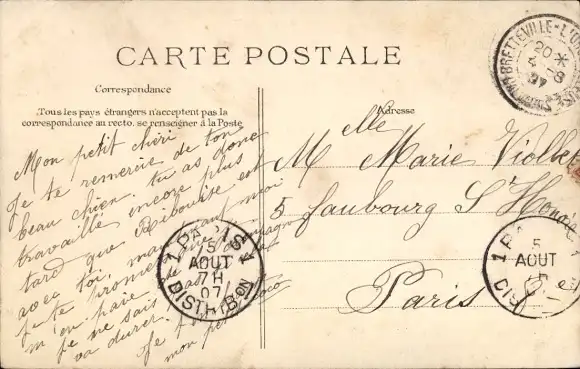 CARTE POSTALE
Correspondance
Tous les pays étrangers n'acceptent pas la
correspondance au recto, se renseigner à la Poste
Adresse
Mon petit chéri
Je te remercie de ton
beau chien. tu as donc
travaillé encore plus
tard que Ribouise est
avec toi, maintenant moi
je te promets
m'en paie
je ne sais
va durer. Je
mon petit coco
Melle Marie Viollet
5 faubourg St Honoré
Paris
BRETTEVILLE-L'O
20 *
5 -8
07
1 PARIS 1
5
AOUT
7H
07
DISTRIBON
5
AOUT